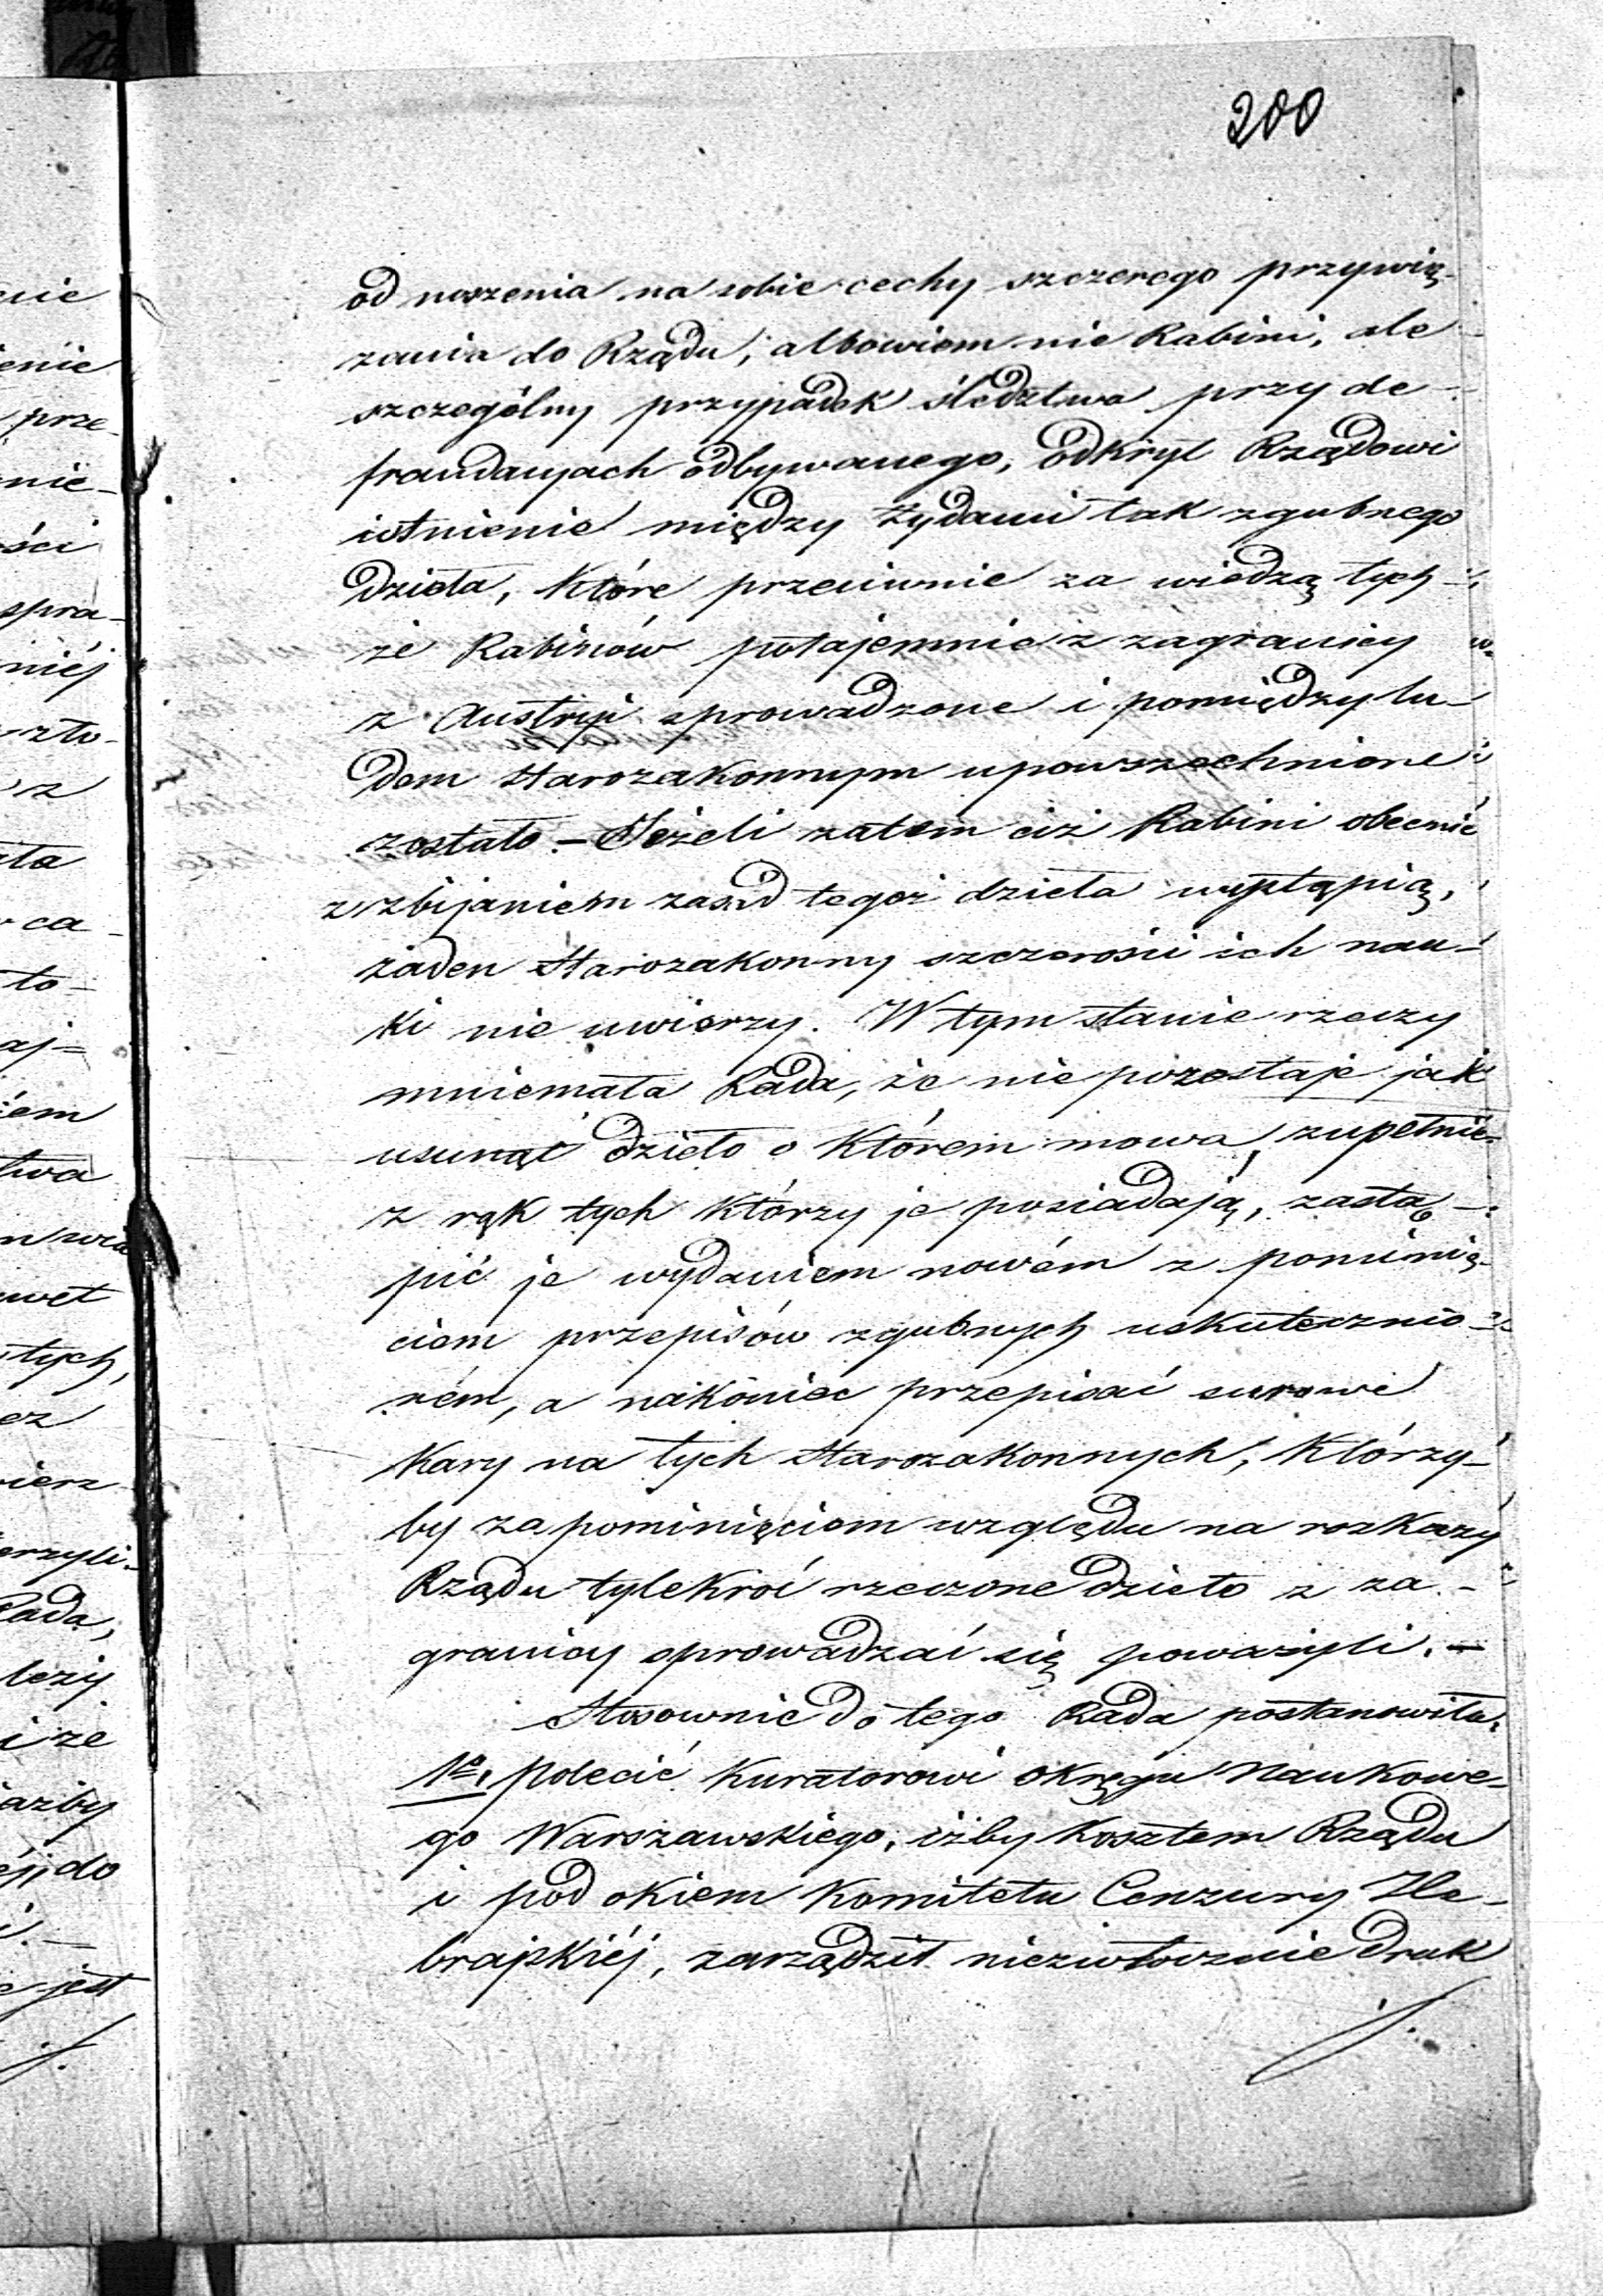 200
od noszenia na sobie cechy szczerego przywią-
zania do Rządu, albowiem nie Rabini, ale
szczególny przypadek śledztwa przy de-
fraudacyach odbywanego, odkrył Rządowi
istnienie między Żydami tak zgubnego
dzieła, które przeciwnie za wiedzą tych-
że Rabinów potajemnie z zagranicy
z Austryi sprowadzone i pomiędzy lu-
dem starozakonnym upowszechnione
zostało. – Jeżeli zatem ciż Rabini obecnie
z zbijaniem zasad tegoż dzieła wystąpią,
żaden starozakonny szczerości ich nau-
ki nie uwierzy. W tym stanie rzeczy
mniemała Rada, że nie pozostaje jak
usunąć dzieło o którem mowa, zupełnie
z rąk tych którzy je posiadają, zastą-
pić je wydaniem nowém z pominię-
ciem przepisów zgubnych uskutecznio-
ném, a nakoniec przepisać surowe
kary na tych starozakonnych, którzy-
by zapominięciem względu na rozkazy
Rządu tylekroć rzeczone dzieło z za-
granicy sprowadzać się poważyli. –
Stosownie do tego Rada postanowiła:
1o, Polecić Kuratorowi Okręgu Naukowe-
go Warszawskiego, iżby kosztem Rządu
i pod okiem Komitetu Cenzury He-
brajskiéj, zarządził niezwłocznie druk